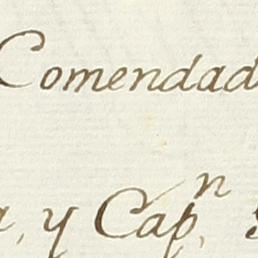 Comendad
a, y Cap.n